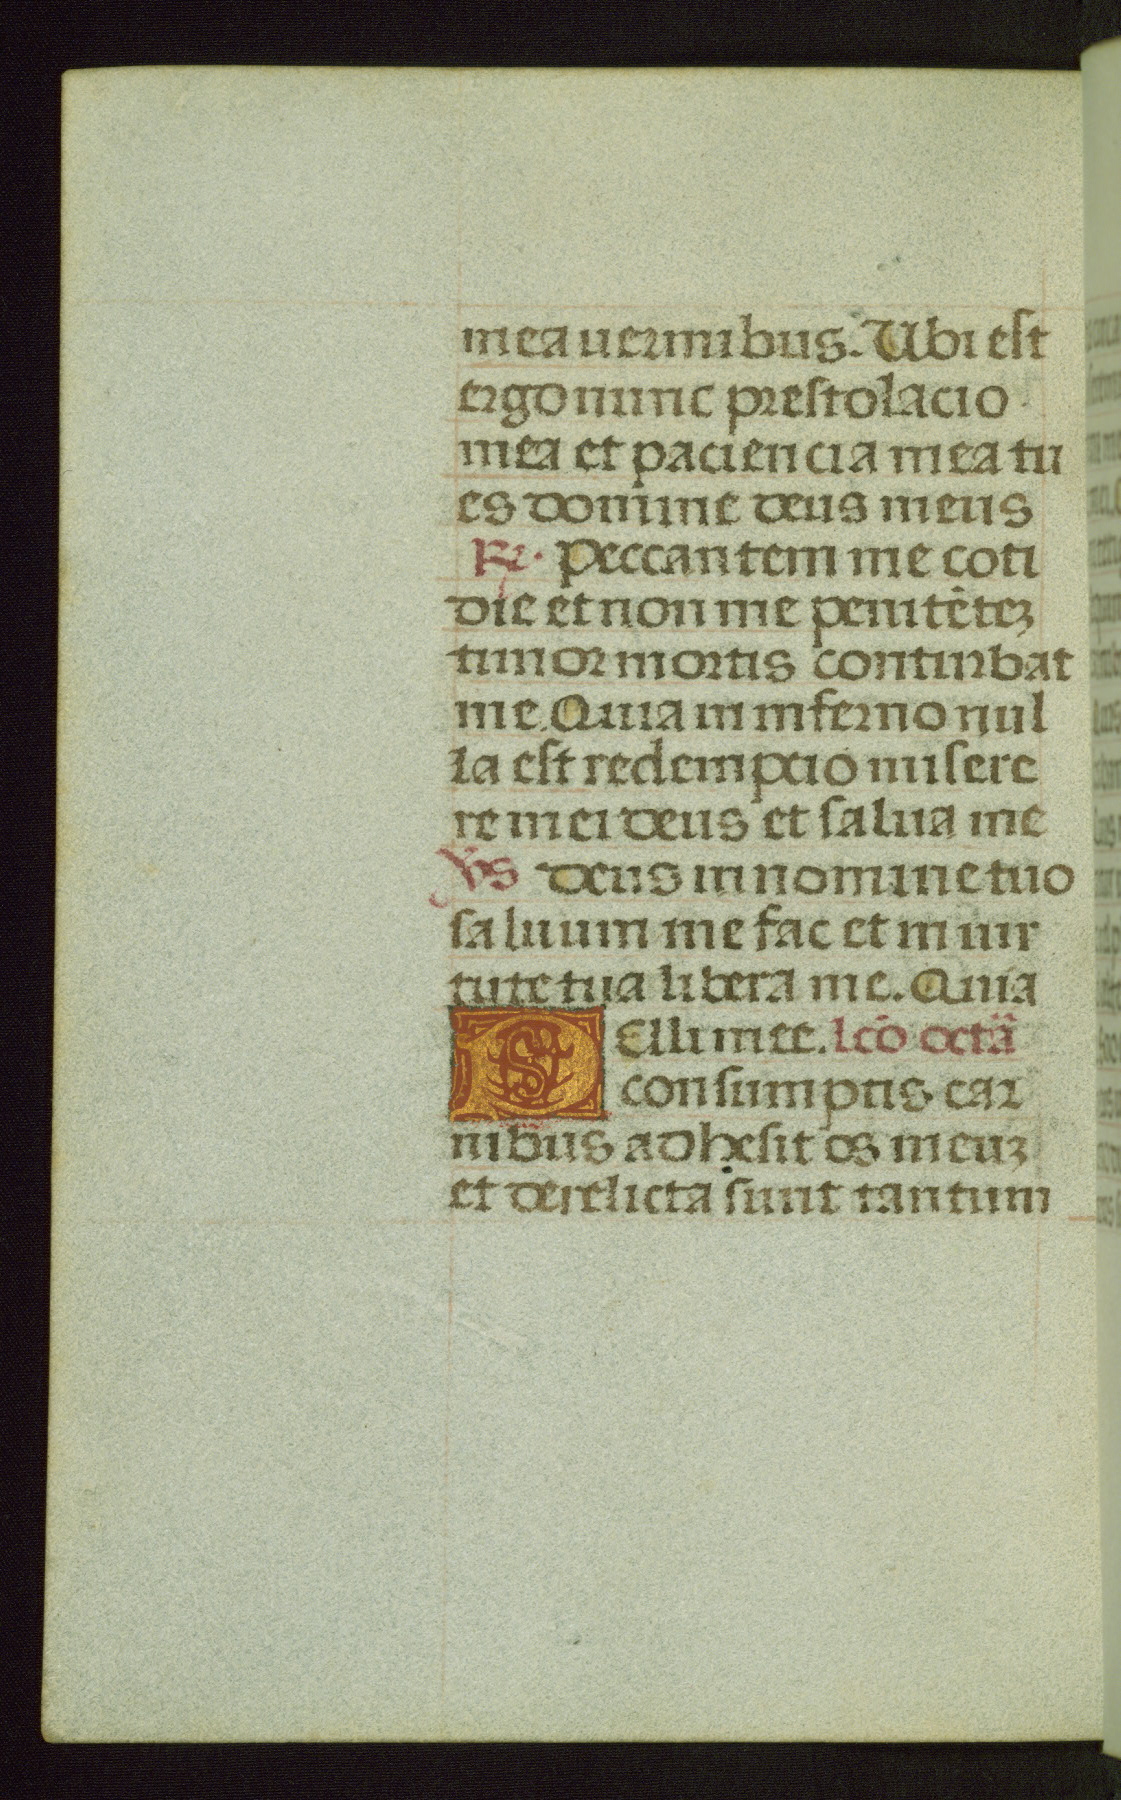 mea uermibus. Ubi est
ergo nunc prestolacio
mea et paciencia mea tu
es domine deus meus
R. Peccantem me coti
die et non me penitētez
timor mortis conturbat
me. Quia in inferno nul
la est redempcio misere
re mei deus et salua me
Vs Deus in nomine tuo
saluum me fac et in uir
tute tua libera me. Quia
P Elli mee. lcō octā
consumptis car
nibus adhesit os meuz
et derelicta sunt tantum